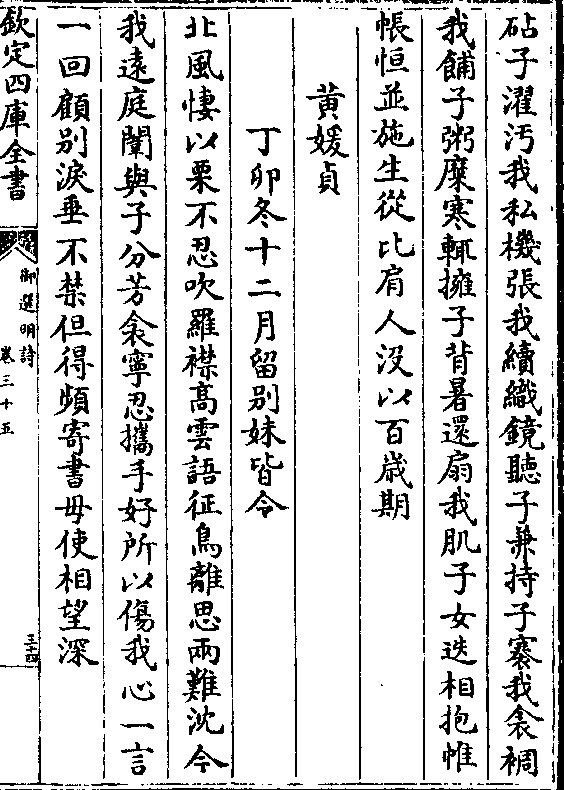 砧子濯汚我私機張我續織鏡聽子兼持子褰我衾裯
我餔子粥糜寒輒擁子背暑還扇我肌子女迭相抱帷
帳恒並施生從比肩人沒以百歲期
黄媛貞
丁卯冬十二月留别妹皆令
北風悽以栗不忍吹羅襟高雲語征鳥離思兩難沈今
我遠庭闈與子分芳衾寧忍攜手好所以傷我心一言
一回顧别淚垂不禁但得頻寄書毋使相望深
欽定四庫全書
御選明詩
卷三十五
三十四